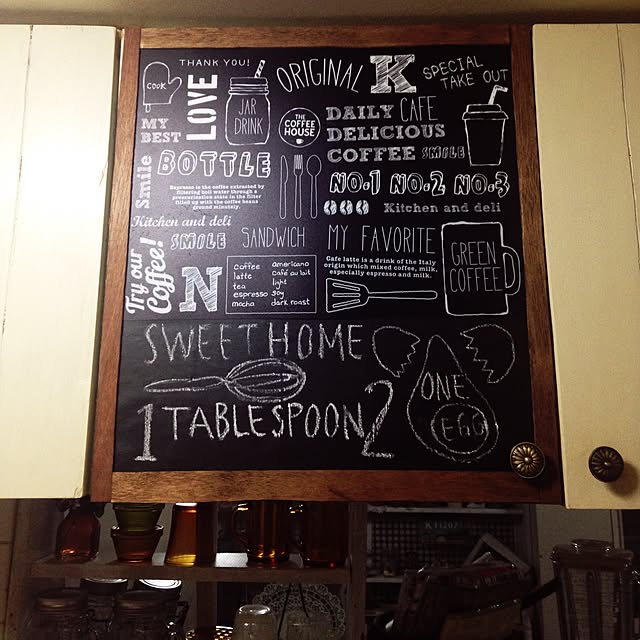 THANK YOU!
COOK
LOVE
MY
BEST
JAR
DRINK
ORIGINAL
K
SPECIAL
TAKE OUT
THE
COFFEE
HOUSE
DAILY CAFE
DELICIOUS
COFFEE SMILE
Smile
BOTTLE
Espresso is the coffee extracted by
filtering boil water through a
pressurization state in the filter
filled up with the coffee beans
ground minutely.
NO.1 NO.2 NO.3
Kitchen and deli
Kitchen and deli
SMILE
SANDWICH
MY FAVORITE
Try our
Coffee!
N
coffee
latte
tea
espresso
mocha
americano
café au lait
light
soy
dark roast
Cafe latte is a drink of the Italy
origin which mixed coffee, milk,
especially espresso and milk.
GREEN
COFFEE
SWEET HOME
1 TABLESPOON 2
ONE
EGG